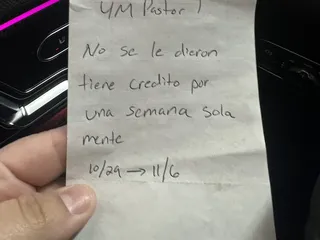 YM Pastor !
No se le dieron
tiene credito por
una semana sola
mente
10/29 → 11/6